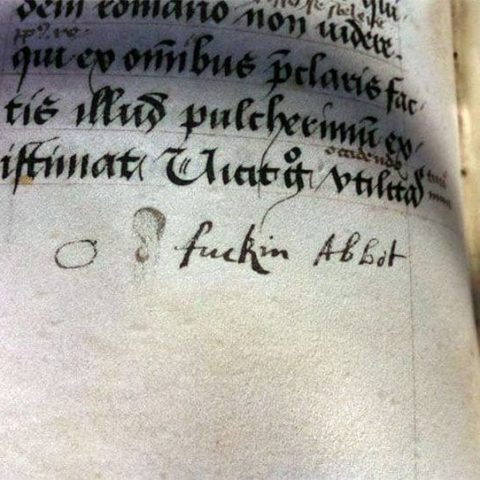 dem romano non uidere.
qui ex om̄ibus p̄claris fac/
tis illud pulcherimū ex/
istimat Vicit g° vtilitas
O d fuckin Abbot